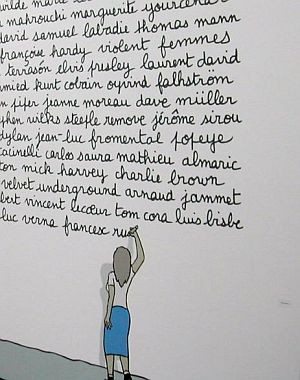 wilde marie
mahrouchi marguerite yourcenar
david samuel labadie thomas mann
françoise hardy violent femmes
terrasón elvis presley laurent david
kurt cobain oyvind falhström
piper jeanne moreau dave müller
steeple remove jérôme sirou
dylan jean-luc fromental popeye
cacinelli carlos saura mathieu almaric
mick harvey charlie brown
velvet underground arnaud jammet
vincent lecœur tom cora luis bisbe
luc verna francesc rus